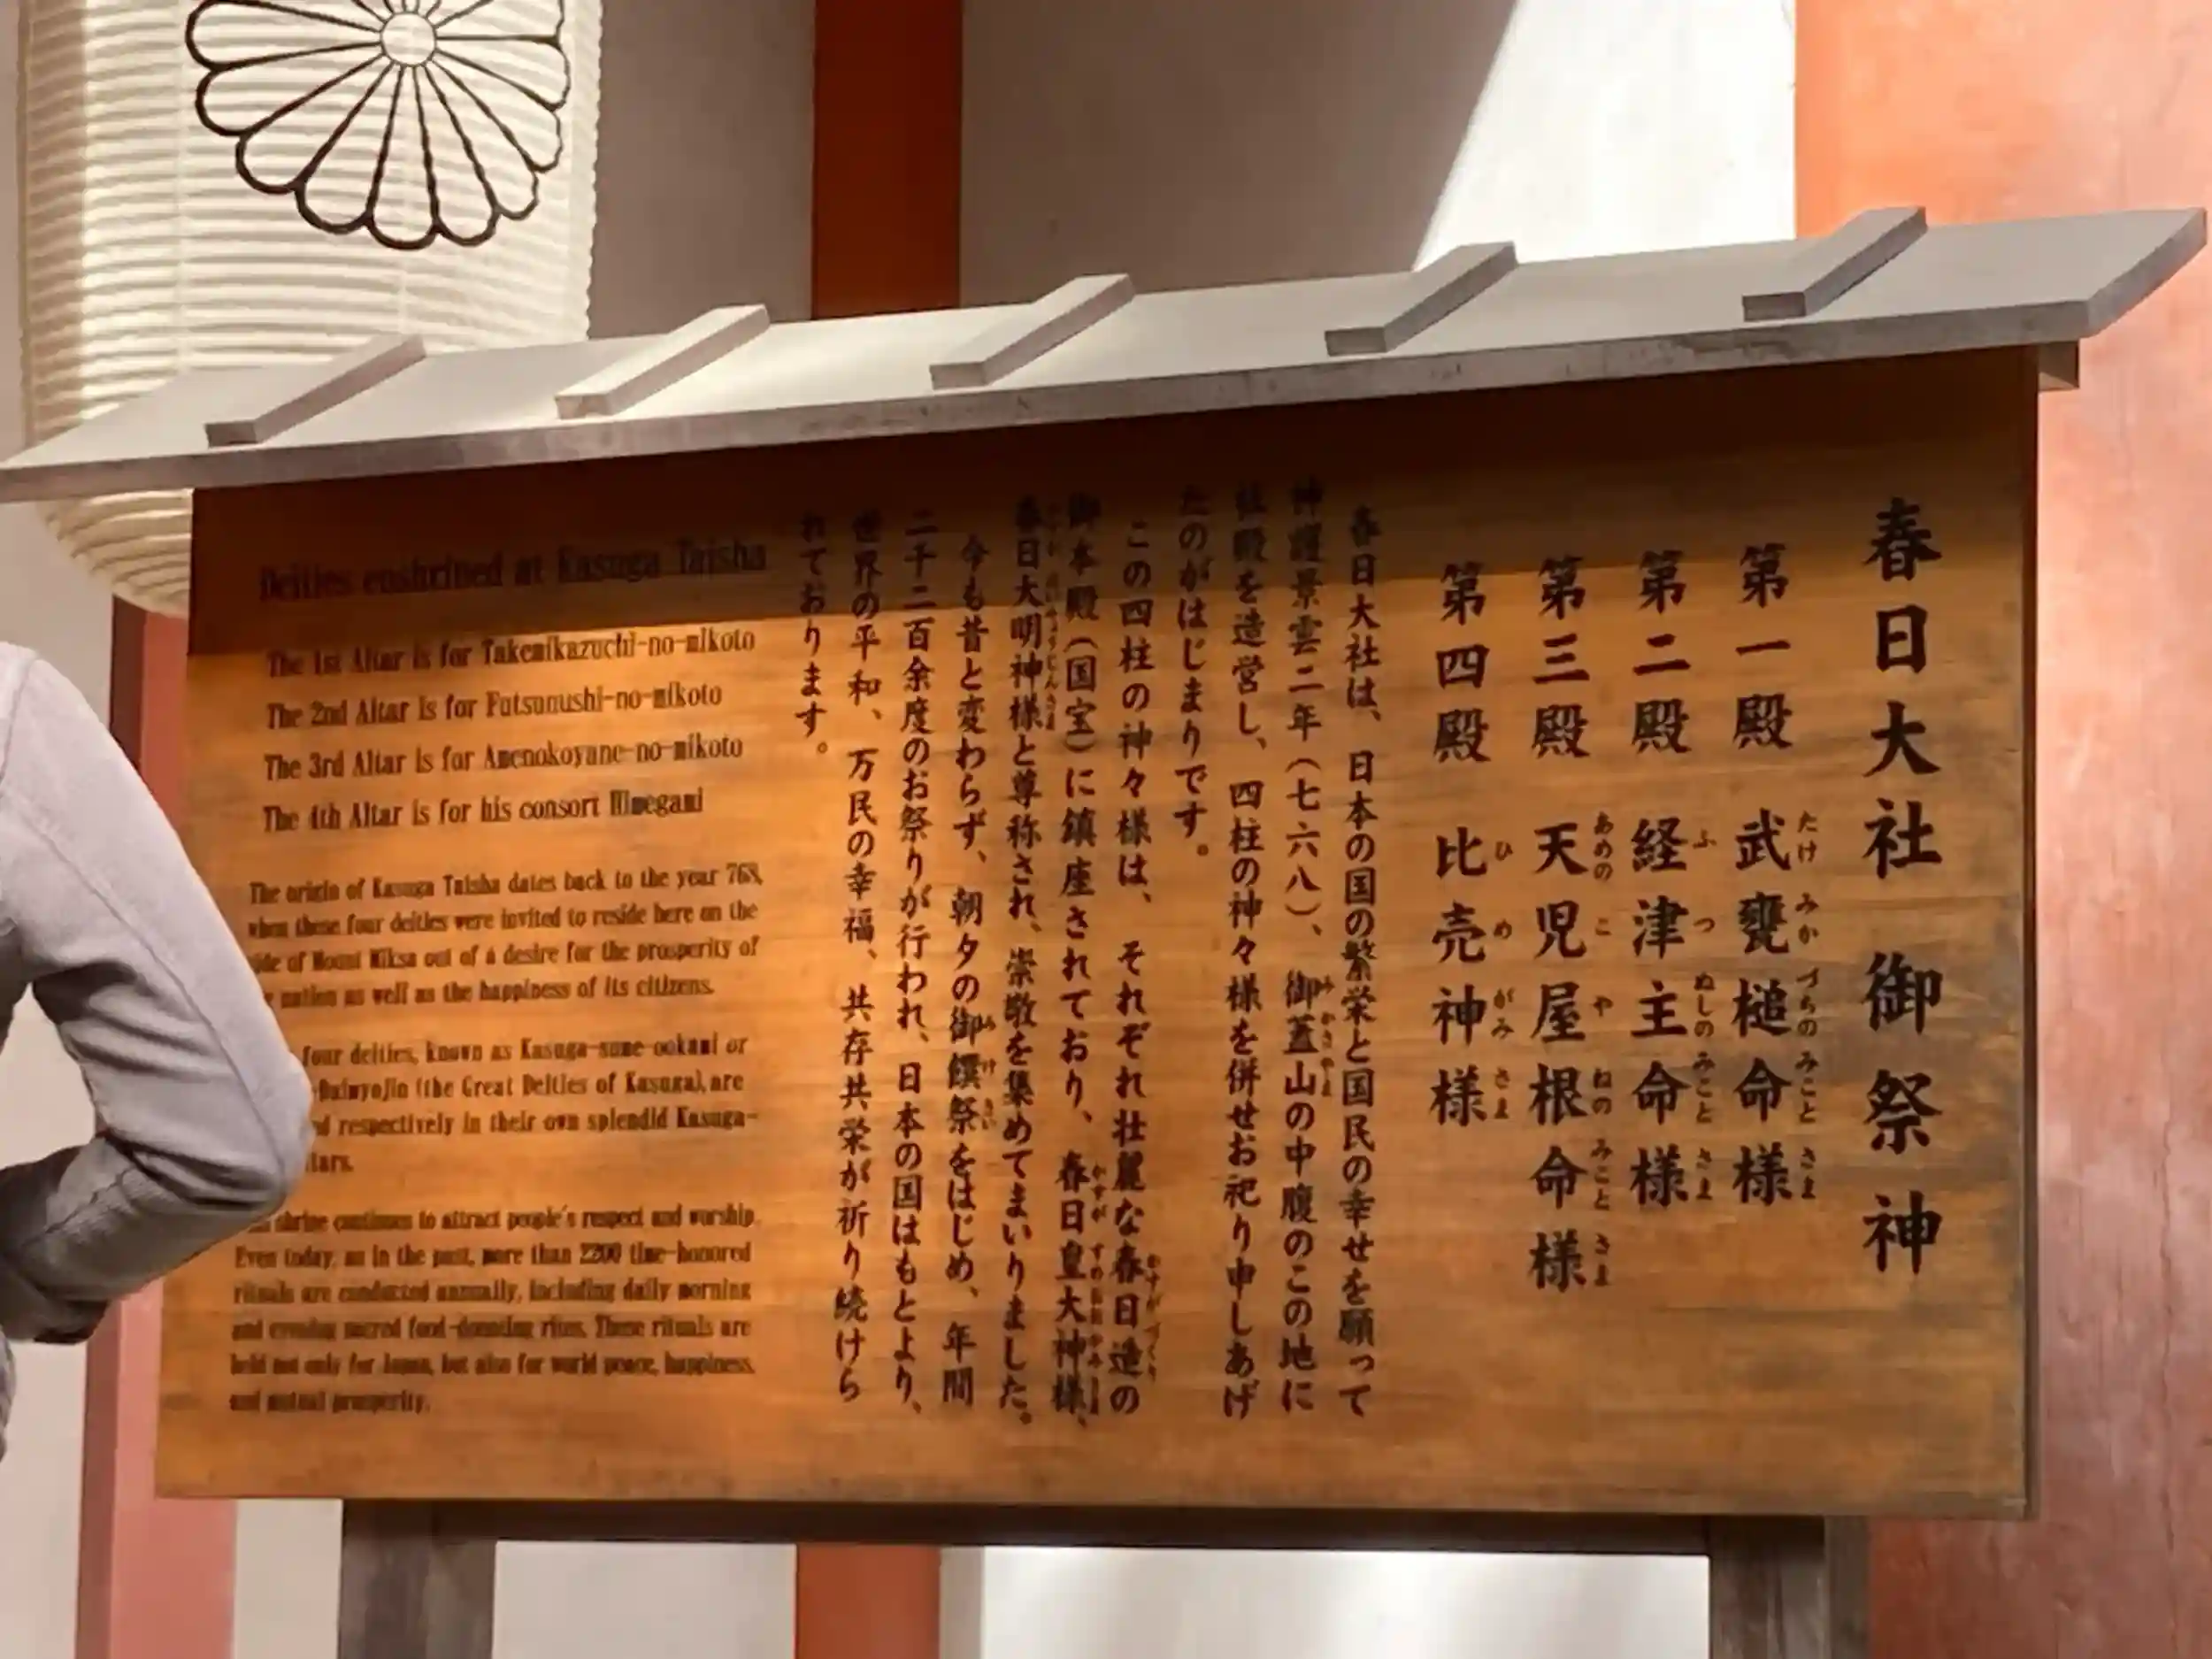 春日大社 御祭神
第一殿 武甕槌命様
たけ みか づちの みこと さま
第二殿 経津主命様
ふ つ ぬしの みこと さま
第三殿 天児屋根命様
あめの こ や ねの みこと さま
第四殿 比売神様
ひ め がみ さま
春日大社は、日本の国の繁栄と国民の幸せを願って
神護景雲二年(七六八)、御蓋山の中腹のこの地に
み かさやま
社殿を造営し、四柱の神々様を併せお祀り申しあげ
たのがはじまりです。
この四柱の神々様は、それぞれ壮麗な春日造の
かすがづくり
御本殿(国宝)に鎮座されており、春日皇大神様、
かすが すめおおかみさま
春日大明神様と尊称され、崇敬を集めてまいりました。
かすが だいみょうじんさま
今も昔と変わらず、朝夕の御饌祭をはじめ、年間
み け さい
二千二百余度のお祭りが行われ、日本の国はもとより、
世界の平和、万民の幸福、共存共栄が祈り続けら
れております。
Deities enshrined at Kasuga Taisha
The 1st Altar is for Takemikazuchi-no-mikoto
The 2nd Altar is for Futsunushi-no-mikoto
The 3rd Altar is for Amenokoyane-no-mikoto
The 4th Altar is for his consort Himegami
The origin of Kasuga Taisha dates back to the year 768,
when these four deities were invited to reside here on the
of Mount Miksa out of a desire for the prosperity of
nation as well as the happiness of its citizens.
four deities, known as Kasuga-sume-ookami or
-Daimyojin (the Great Deities of Kasuga), are
respectively in their own splendid Kasuga-
shrine continues to attract people's respect and worship.
Even today, as in the past, more than 2200 time-honored
rituals are conducted annually, including daily morning
and evening sacred food-donating rites. These rituals are
held not only for Japan, but also for world peace, happiness,
and mutual prosperity.